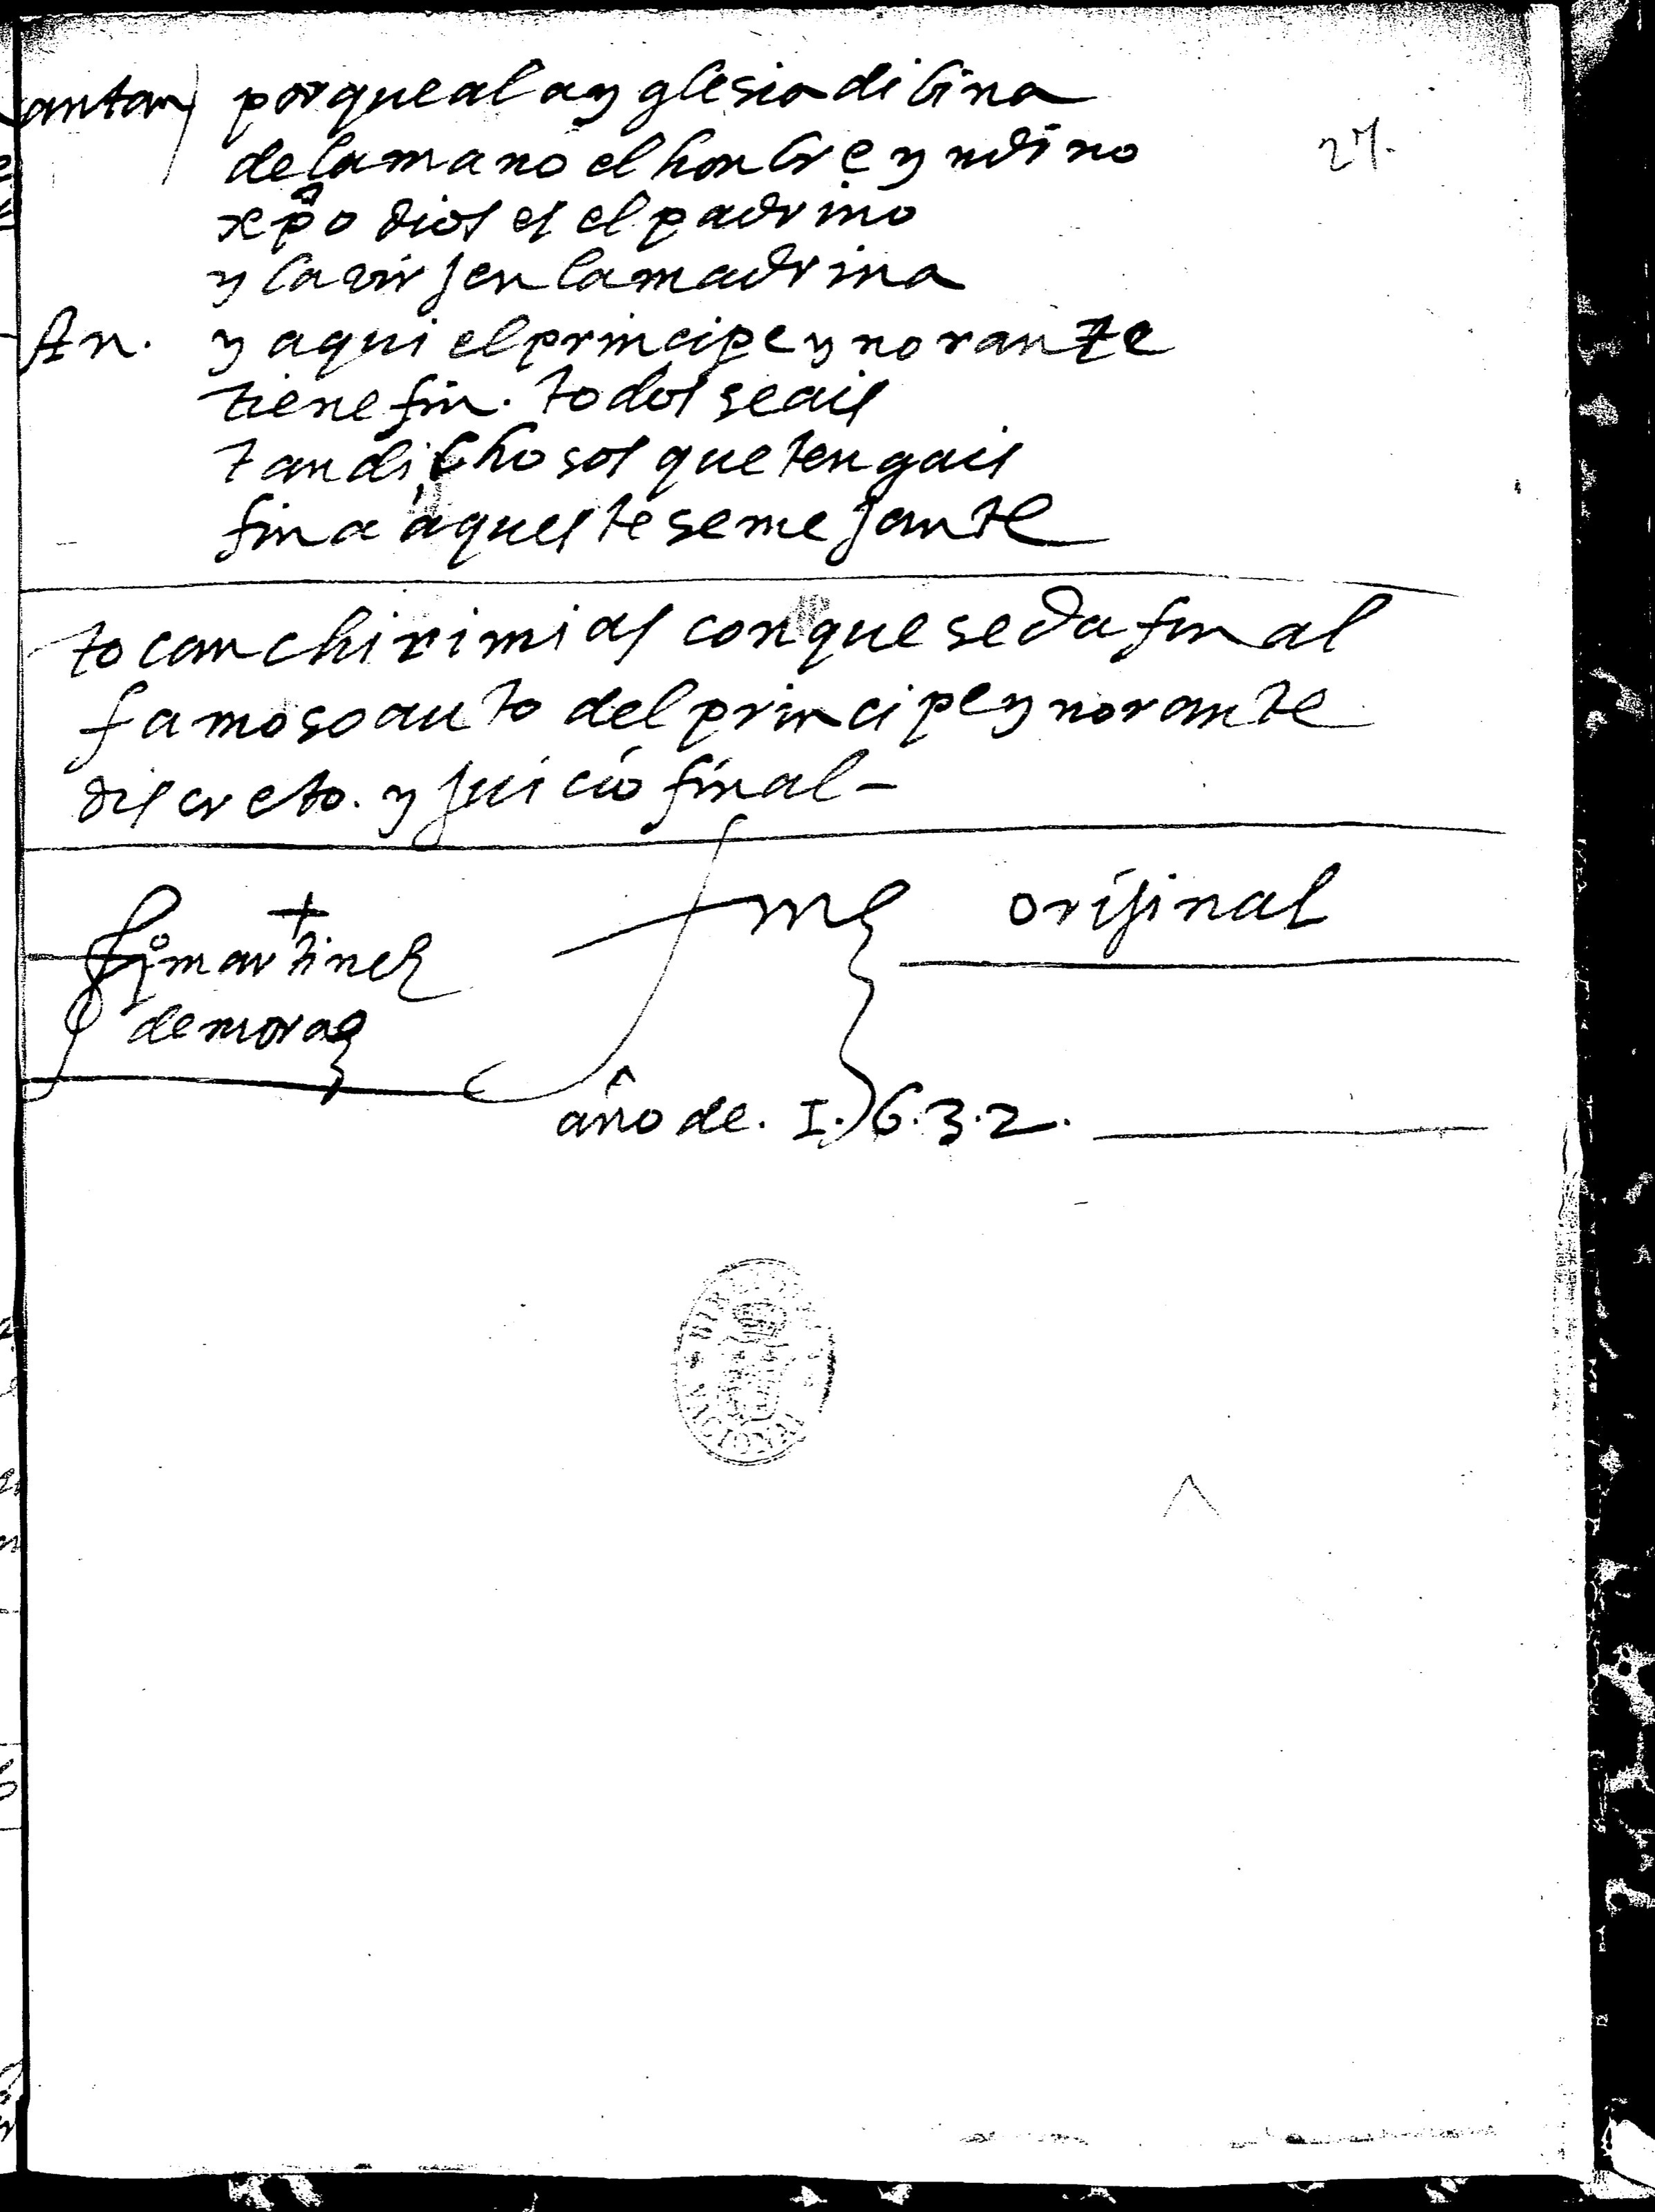 cantan porque a la yglesia dibina
27.
de la mano el honbre yndino
xpo dios es el padrino
y la virjen la madrina
An. y aqui el principe ynorante
tiene fin. todos seais
tan dichosos que tengais
fin a aqueste semejante
tocan chirimias con que se da fin al
famoso auto del principe ynorante
discreto. y juicio final-
orijinal
martinez
de mora
año de. I.6.3.2.